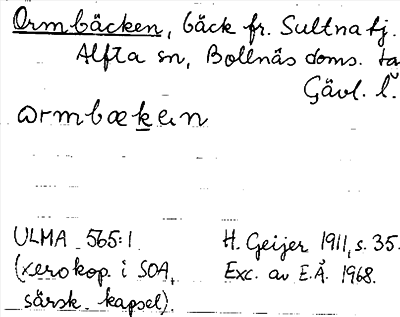 Ormbäcken, bäck fr. Sultnatj.
Alfta sn, Bollnäs doms. ta
Gävl. l.
ormbækɐn
ULMA 565:1
(xerokop. i SOA,
särsk. kapsel).
H. Geijer 1911, s. 35.
Exc. av E.Å. 1968.